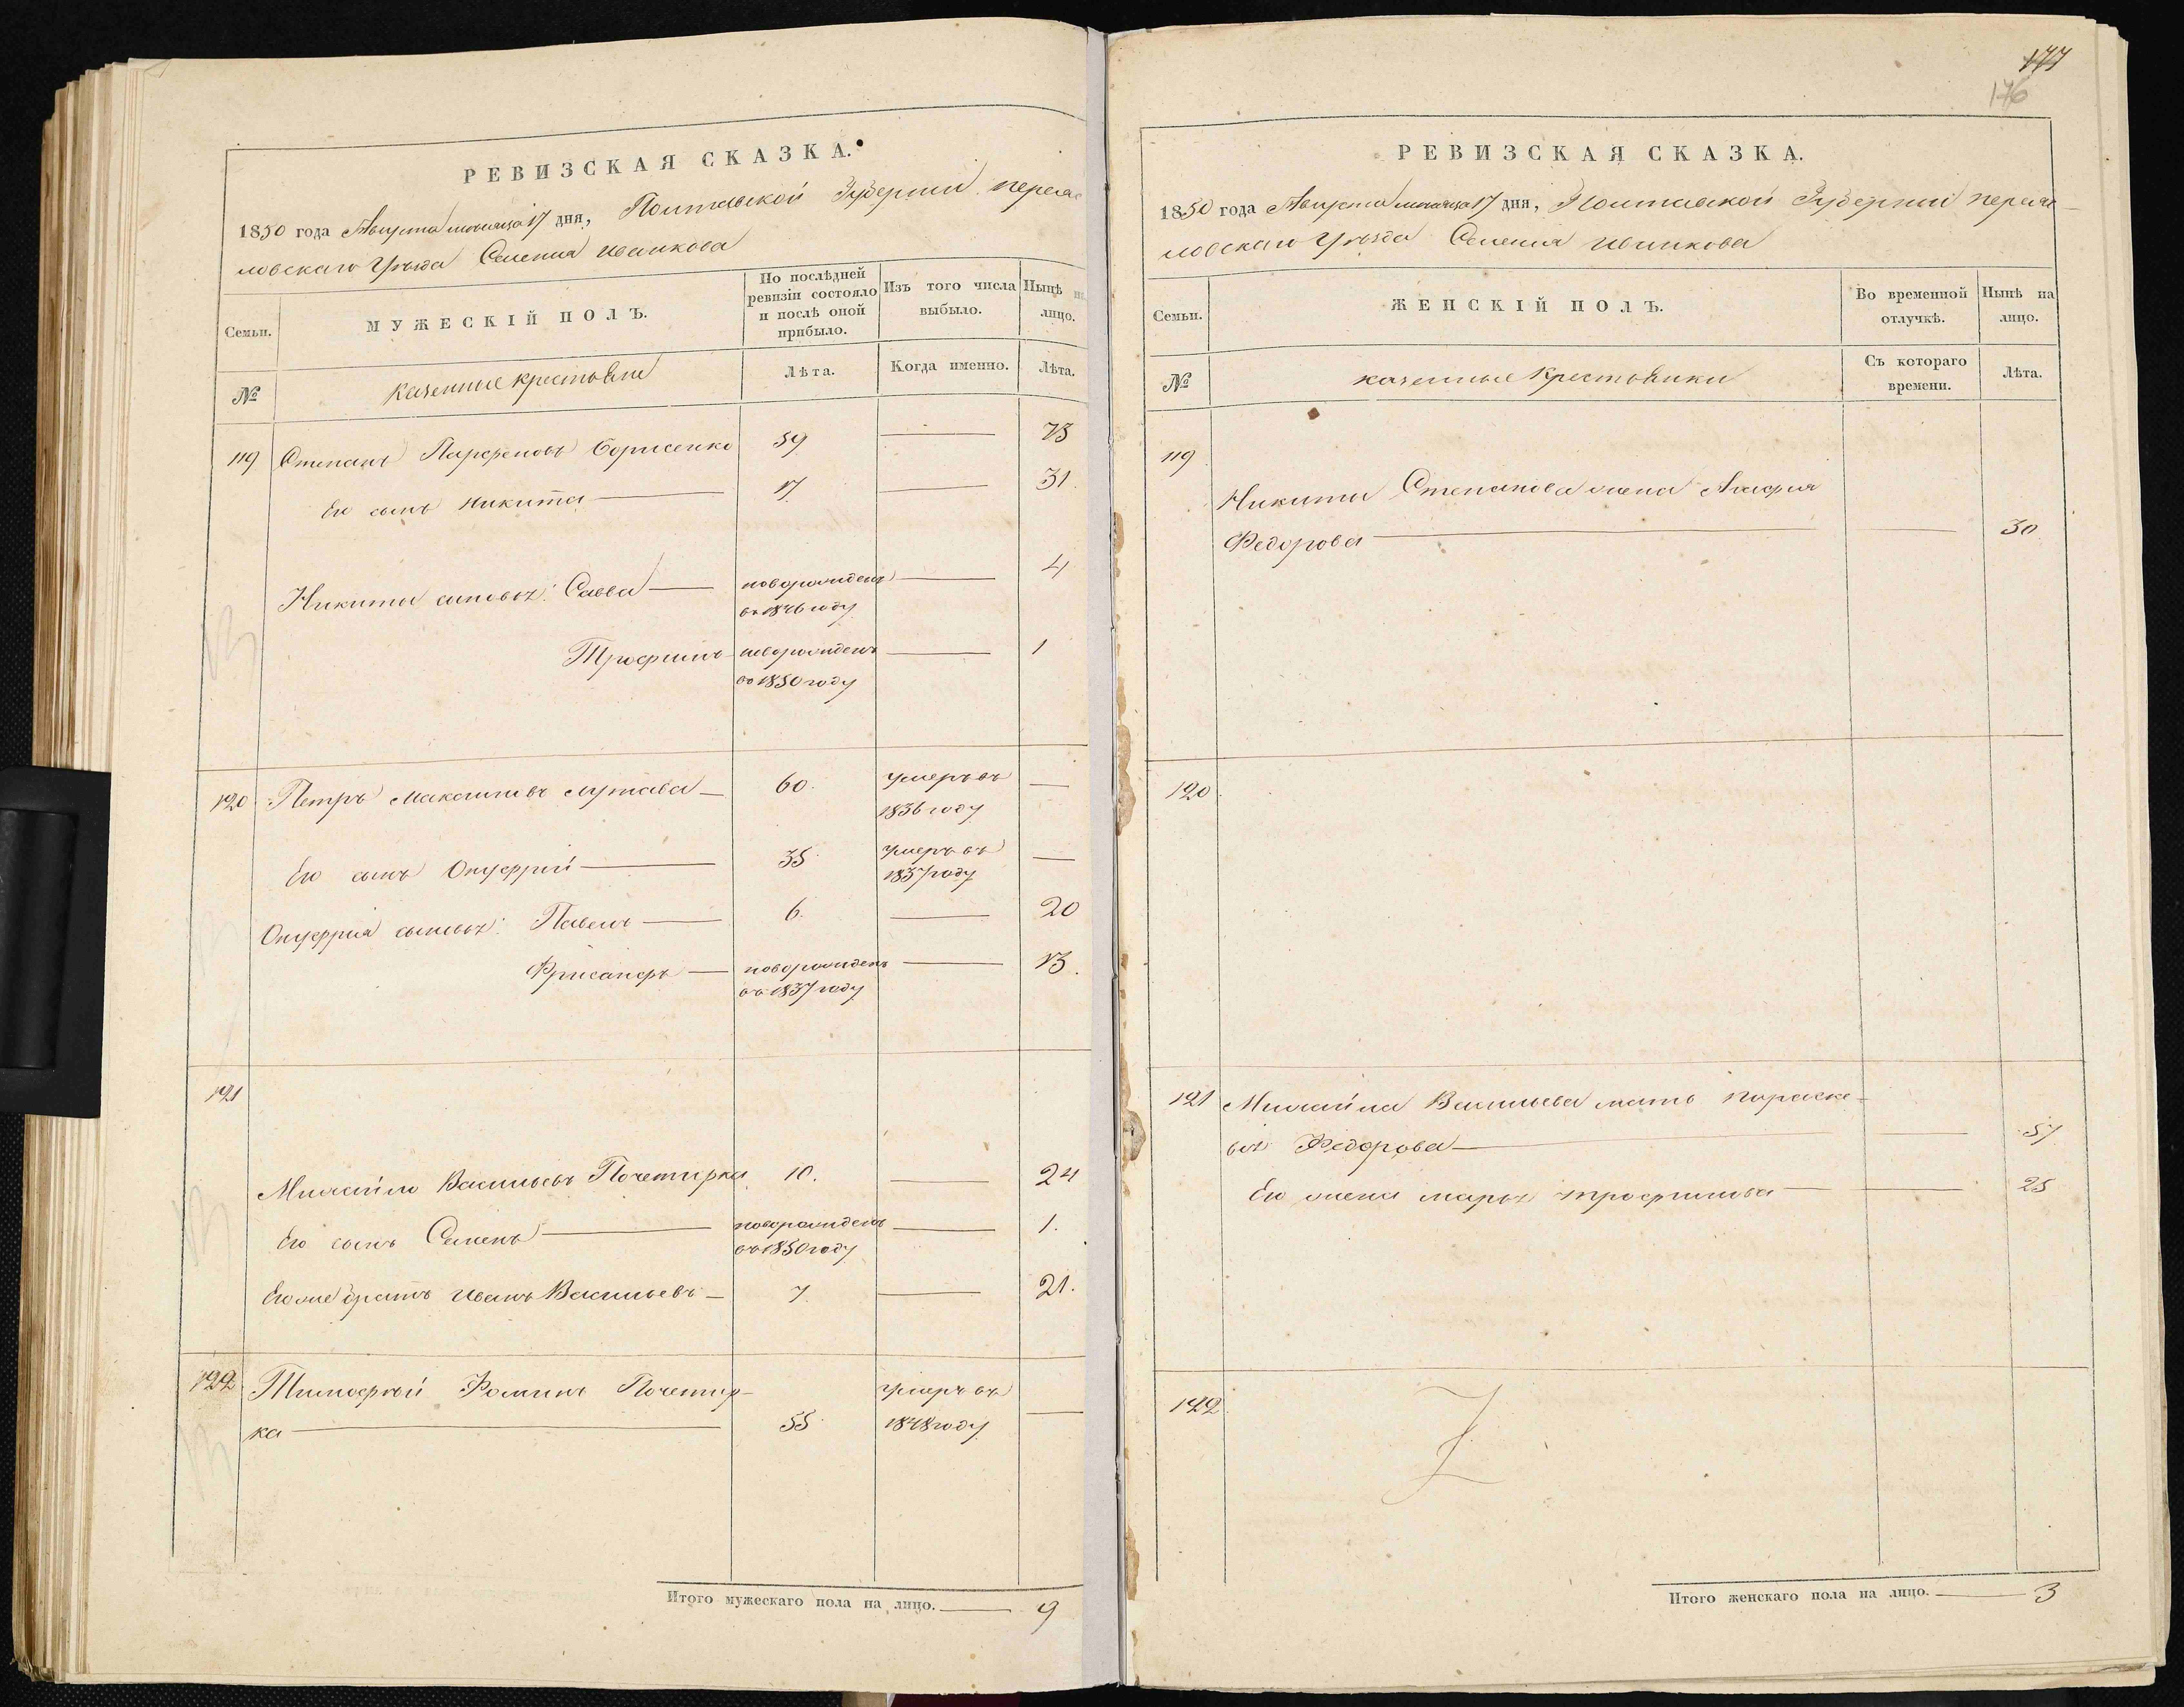 РЕВИЗСКАЯ СКАЗКА.
1850 года Августа месяца 17 дня, Полтавской Губернии Перея
ловскаго Уѣзда Селения Иванкова
Семьи.
МУЖЕСКІЙ ПОЛЪ.
По послѣдней
ревизіи состояло
и послѣ оной
прибыло.
Изъ того числа
выбыло.
Нынѣ на
лицо.
№
казенные крестьяне
Лѣта.
Когда именно.
Лѣта.
119 Степанъ Парфеновъ Борисенко 59 — 73
Его сынъ Никита — 17 — 31.
Никиты сыновья: Савва — новорожденъ — 4
въ 1846 году
Трофимъ новорожденъ — 1
въ 1850 году
120 Петръ Максимовъ Лутава — 60. умеръ въ —
1836 году
Его сынъ Онуфрій — 35 умеръ въ —
1837 году
Онуфрия сыновья: Павелъ — 6. — 20
Фрисанфъ — новорожденъ — 13.
въ 1837 году
121
Михайло Васильевъ Почетирка 10. — 24
Его сынъ Семенъ — новорожденъ — 1.
въ 1850 году
Его же братъ Иванъ Васильевъ — 7 — 21.
122 Тимофѣй Фоминъ Почетир-
умеръ въ
ка — 55 1848 году —
Итого мужескаго пола на лицо. — 9
177
176
РЕВИЗСКАЯ СКАЗКА.
1850 года Августа месяца 17 дня, Полтавской Губернии Перея-
ловскаго Уѣзда Селения Иванкова
Семьи.
ЖЕНСКІЙ ПОЛЪ.
Во временной
отлучкѣ.
Нынѣ на
лицо.
№
казенные крестьянки
Съ котораго
времени.
Лѣта.
119
Никиты Степанова жена Агафия
Федорова — — 30
120
121 Михайла Васильева мать Параске-
вия Федорова — — 57
Его жена Марья Трофимова — — 25
122
Итого женскаго пола на лицо. — 3